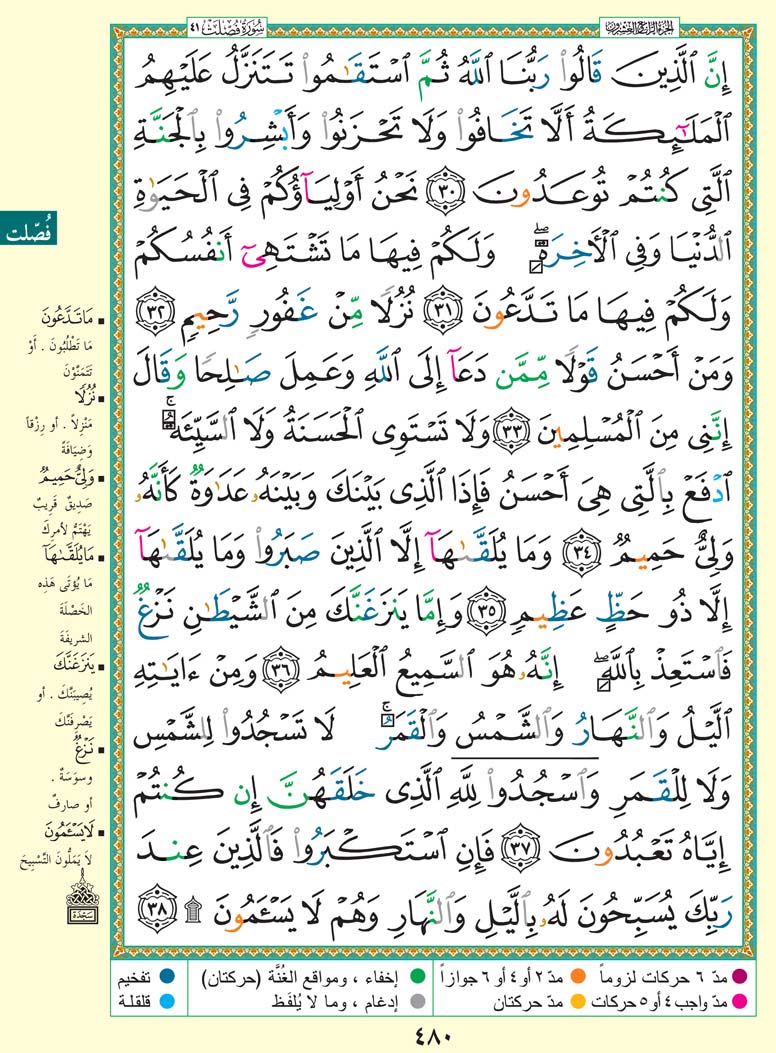 الجزء الرابع والعشرون
سُورَةُ فُصِّلَتْ ٤١
إِنَّ ٱلَّذِينَ قَالُوا۟ رَبُّنَا ٱللَّهُ ثُمَّ ٱسْتَقَـٰمُوا۟ تَتَنَزَّلُ عَلَيْهِمُ
ٱلْمَلَـٰٓئِكَةُ أَلَّا تَخَافُوا۟ وَلَا تَحْزَنُوا۟ وَأَبْشِرُوا۟ بِٱلْجَنَّةِ
ٱلَّتِى كُنتُمْ تُوعَدُونَ ٣٠ نَحْنُ أَوْلِيَآؤُكُمْ فِى ٱلْحَيَوٰةِ
ٱلدُّنْيَا وَفِى ٱلْـَٔاخِرَةِ ۖ وَلَكُمْ فِيهَا مَا تَشْتَهِىٓ أَنفُسُكُمْ
وَلَكُمْ فِيهَا مَا تَدَّعُونَ ٣١ نُزُلًا مِّنْ غَفُورٍ رَّحِيمٍ ٣٢
وَمَنْ أَحْسَنُ قَوْلًا مِّمَّن دَعَآ إِلَى ٱللَّهِ وَعَمِلَ صَـٰلِحًا وَقَالَ
إِنَّنِى مِنَ ٱلْمُسْلِمِينَ ٣٣ وَلَا تَسْتَوِى ٱلْحَسَنَةُ وَلَا ٱلسَّيِّئَةُ ۚ
ٱدْفَعْ بِٱلَّتِى هِىَ أَحْسَنُ فَإِذَا ٱلَّذِى بَيْنَكَ وَبَيْنَهُۥ عَدَٰوَةٌ كَأَنَّهُۥ
وَلِىٌّ حَمِيمٌ ٣٤ وَمَا يُلَقَّىٰهَآ إِلَّا ٱلَّذِينَ صَبَرُوا۟ وَمَا يُلَقَّىٰهَآ
إِلَّا ذُو حَظٍّ عَظِيمٍ ٣٥ وَإِمَّا يَنزَغَنَّكَ مِنَ ٱلشَّيْطَـٰنِ نَزْغٌ
فَٱسْتَعِذْ بِٱللَّهِ ۖ إِنَّهُۥ هُوَ ٱلسَّمِيعُ ٱلْعَلِيمُ ٣٦ وَمِنْ ءَايَـٰتِهِ
ٱلَّيْلُ وَٱلنَّهَارُ وَٱلشَّمْسُ وَٱلْقَمَرُ ۚ لَا تَسْجُدُوا۟ لِلشَّمْسِ
وَلَا لِلْقَمَرِ وَٱسْجُدُوا۟ لِلَّهِ ٱلَّذِى خَلَقَهُنَّ إِن كُنتُمْ
إِيَّاهُ تَعْبُدُونَ ٣٧ فَإِنِ ٱسْتَكْبَرُوا۟ فَٱلَّذِينَ عِندَ
رَبِّكَ يُسَبِّحُونَ لَهُۥ بِٱلَّيْلِ وَٱلنَّهَارِ وَهُمْ لَا يَسْـَٔمُونَ ۩ ٣٨
فُصّلت
مَا تَدَّعُونَ
مَا تَطْلُبُونَ . أَوْ
تَتَمَنَّوْنَ
نُزُلًا
مَنْزِلاً . أو رِزْقاً
وَضِيَافَةً
وَلِيٌّ حَمِيمٌ
صَدِيقٌ قَرِيبٌ
يَهْتَمُّ لأمرِكَ
مَا يُلَقَّىٰهَآ
مَا يُؤْتَى هَذِه
الخَصْلَةَ
الشريفَةَ
يَنزَغَنَّكَ
يُصِيبَنَّكَ . أو
يَصْرِفَنَّكَ
نَزْغٌ
وسوَسَةٌ .
أو صارفٌ
لَا يَسْـَٔمُونَ
لاَ يَمَلُّونَ التَّسْبِيحَ
سَجْدَة
مدّ ٦ حركات لزوماً
مدّ ٢ أو ٤ أو ٦ جوازاً
إخفاء ، ومواقع الغُنَّة (حركتان)
تفخيم
مدّ واجب ٤ أو ٥ حركات
مدّ حركتان
إدغام ، وما لا يُلفَظ
قلقلة
٤٨٠